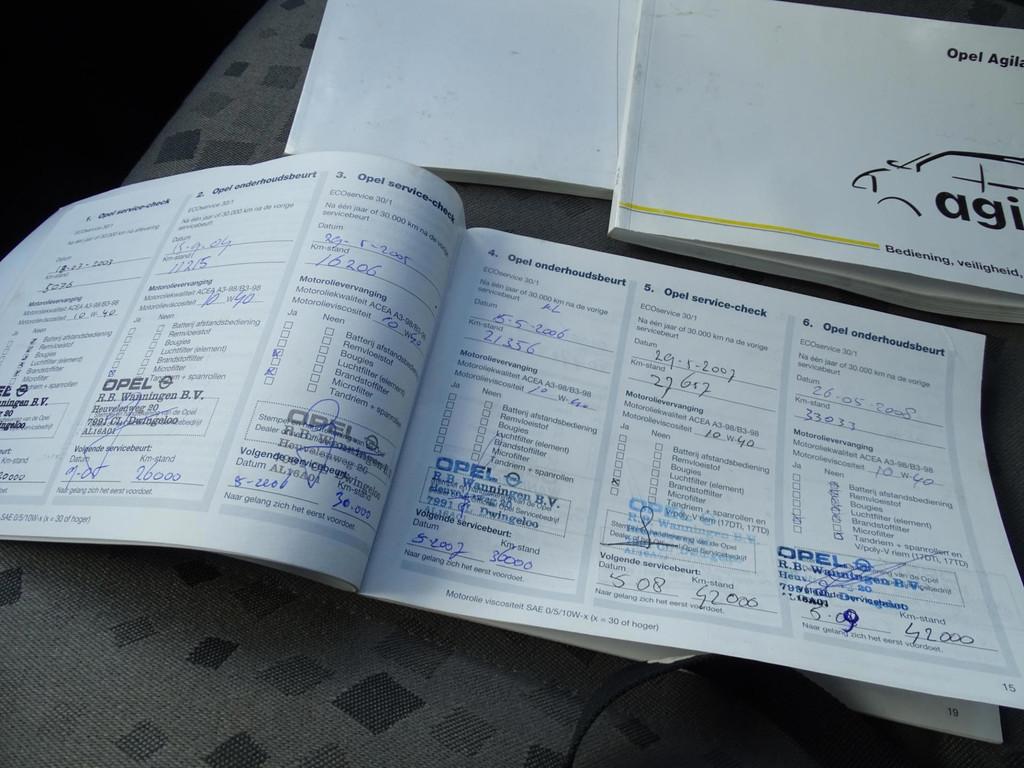 Opel Agila
agi
Bediening, veiligheid,
1. Opel service-check
ECOservice 30/1
Na één jaar of 30.000 km na aflevering
Datum
18-03-2003
Km-stand
5076
Motorolievervanging
Motoroliekwaliteit ACEA A3-98/B3-98
Motorolieviscositeit 10 W-40
Ja Neen
Batterij afstandsbediening
Remvloeistof
Bougies
Luchtfilter (element)
Brandstoffilter
Microfilter
Tandriem + spanrollen
2. Opel onderhoudsbeurt
ECOservice 30/1
Na één jaar of 30.000 km na de vorige
servicebeurt
Datum
15-9-04
Km-stand
11215
Motorolievervanging
Motoroliekwaliteit ACEA A3-98/B3-98
Motorolieviscositeit 10 W-40
Ja Neen
Batterij afstandsbediening
Remvloeistof
Bougies
Luchtfilter (element)
Brandstoffilter
Microfilter
Tandriem + spanrollen
OPEL
R.B. Wanningen B.V.
Heuvelenweg 20
7991 CL Dwingeloo
AL16A01
Volgende servicebeurt:
Datum Km-stand
9-05 26000
Naar gelang zich het eerst voordoet.
SAE 0/5/10W-x (x = 30 of hoger)
3. Opel service-check
ECOservice 30/1
Na één jaar of 30.000 km na de vorige
servicebeurt
Datum
29-5-2005
Km-stand
16206
Motorolievervanging
Motoroliekwaliteit ACEA A3-98/B3-98
Motorolieviscositeit 10 W-40
Ja Neen
Batterij afstandsbediening
Remvloeistof
Bougies
Luchtfilter (element)
Brandstoffilter
Microfilter
Tandriem + spanrollen
OPEL
R.B. Wanningen B.V.
Heuvelenweg 20
7991 CL Dwingeloo
AL16A01
Volgende servicebeurt:
Datum Km-stand
5-2006 30.000
Naar gelang zich het eerst voordoet.
4. Opel onderhoudsbeurt
ECOservice 30/1
Na één jaar of 30.000 km na de vorige
servicebeurt
Datum
15-5-2006
Km-stand
21356
Motorolievervanging
Motoroliekwaliteit ACEA A3-98/B3-98
Motorolieviscositeit 10 W-40
Ja Neen
Batterij afstandsbediening
Remvloeistof
Bougies
Luchtfilter (element)
Brandstoffilter
Microfilter
Tandriem + spanrollen
OPEL
R.B. Wanningen B.V.
Heuvelenweg 20
7991 CL Dwingeloo
AL16A01
Volgende servicebeurt:
Datum Km-stand
5-2007 36000
Naar gelang zich het eerst voordoet.
Motorolie viscositeit SAE 0/5/10W-x (x = 30 of hoger)
5. Opel service-check
ECOservice 30/1
Na één jaar of 30.000 km na de vorige
servicebeurt
Datum
29-5-2007
Km-stand
27617
Motorolievervanging
Motoroliekwaliteit ACEA A3-98/B3-98
Motorolieviscositeit 10 W-40
Ja Neen
Batterij afstandsbediening
Remvloeistof
Bougies
Luchtfilter (element)
Brandstoffilter
Microfilter
Tandriem + spanrollen en
V/poly-V riem (17DTI, 17TD)
OPEL
R.B. Wanningen B.V.
Volgende servicebeurt:
Datum Km-stand
5 08 42000
Naar gelang zich het eerst voordoet.
6. Opel onderhoudsbeurt
ECOservice 30/1
Na één jaar of 30.000 km na de vorige
servicebeurt
Datum
26-05-2008
Km-stand
33033
Motorolievervanging
Motoroliekwaliteit ACEA A3-98/B3-98
Motorolieviscositeit 10 W-40
Ja Neen
Batterij afstandsbediening
Remvloeistof
Bougies
Luchtfilter (element)
Brandstoffilter
Microfilter
Tandriem + spanrollen en
V/poly-V riem (17DTI, 17TD)
OPEL
R.B. Wanningen B.V.
7991 CL Dwingeloo
AL16A01
Km-stand
5-09 42000
Naar gelang zich het eerst voordoet.
15
19